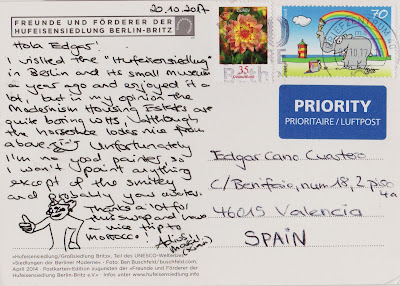 20.10.2017
FREUNDE UND FÖRDERER DER
HUFEISENSIEDLUNG BERLIN-BRITZ
Hola Edgar!
I visited the "Hufeisensiedlung"
in Berlin and its small museum
a year ago and enjoyed it a
lot, but in my opinion the
Modernism Housing Estates are
quite boring, although
the horseshoe looks nice from
above. Unfortunately
I'm no good painter, so
I won't paint anything
except of the smiley
and probably you
Thanks a lot for
this swap and have
a nice trip to
MOROCCO!
35
70
PRIORITY
PRIORITAIRE / LUFTPOST
Edgar Cano
C/Benifaio, num 18, 2 piso
4a
46019 Valencia
SPAIN
»Hufeisensiedlung/Großsiedlung Britz«, Teil des UNESCO-Welterbes
»Siedlungen der Berliner Moderne« · Foto: Ben Buschfeld/buschfeld.com,
April 2014 · Postkarten-Edition zugunsten der »Freunde und Förderer der
Hufeisensiedlung Berlin-Britz e.V.« Infos unter www.hufeisensiedlung.info